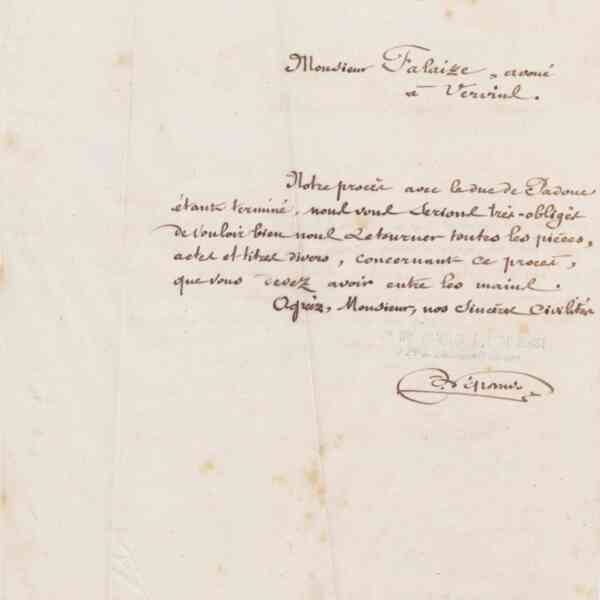 Monsieur Falaize, avoué
à Vervins.
Notre procès avec le duc de Padoue
étant terminé, nous vous serions très-obligés
de vouloir bien nous retourner toutes les pièces,
actes et titres divers, concernant ce procès,
que vous devez avoir entre les mains.
Agréez, Monsieur, nos sincères civilités